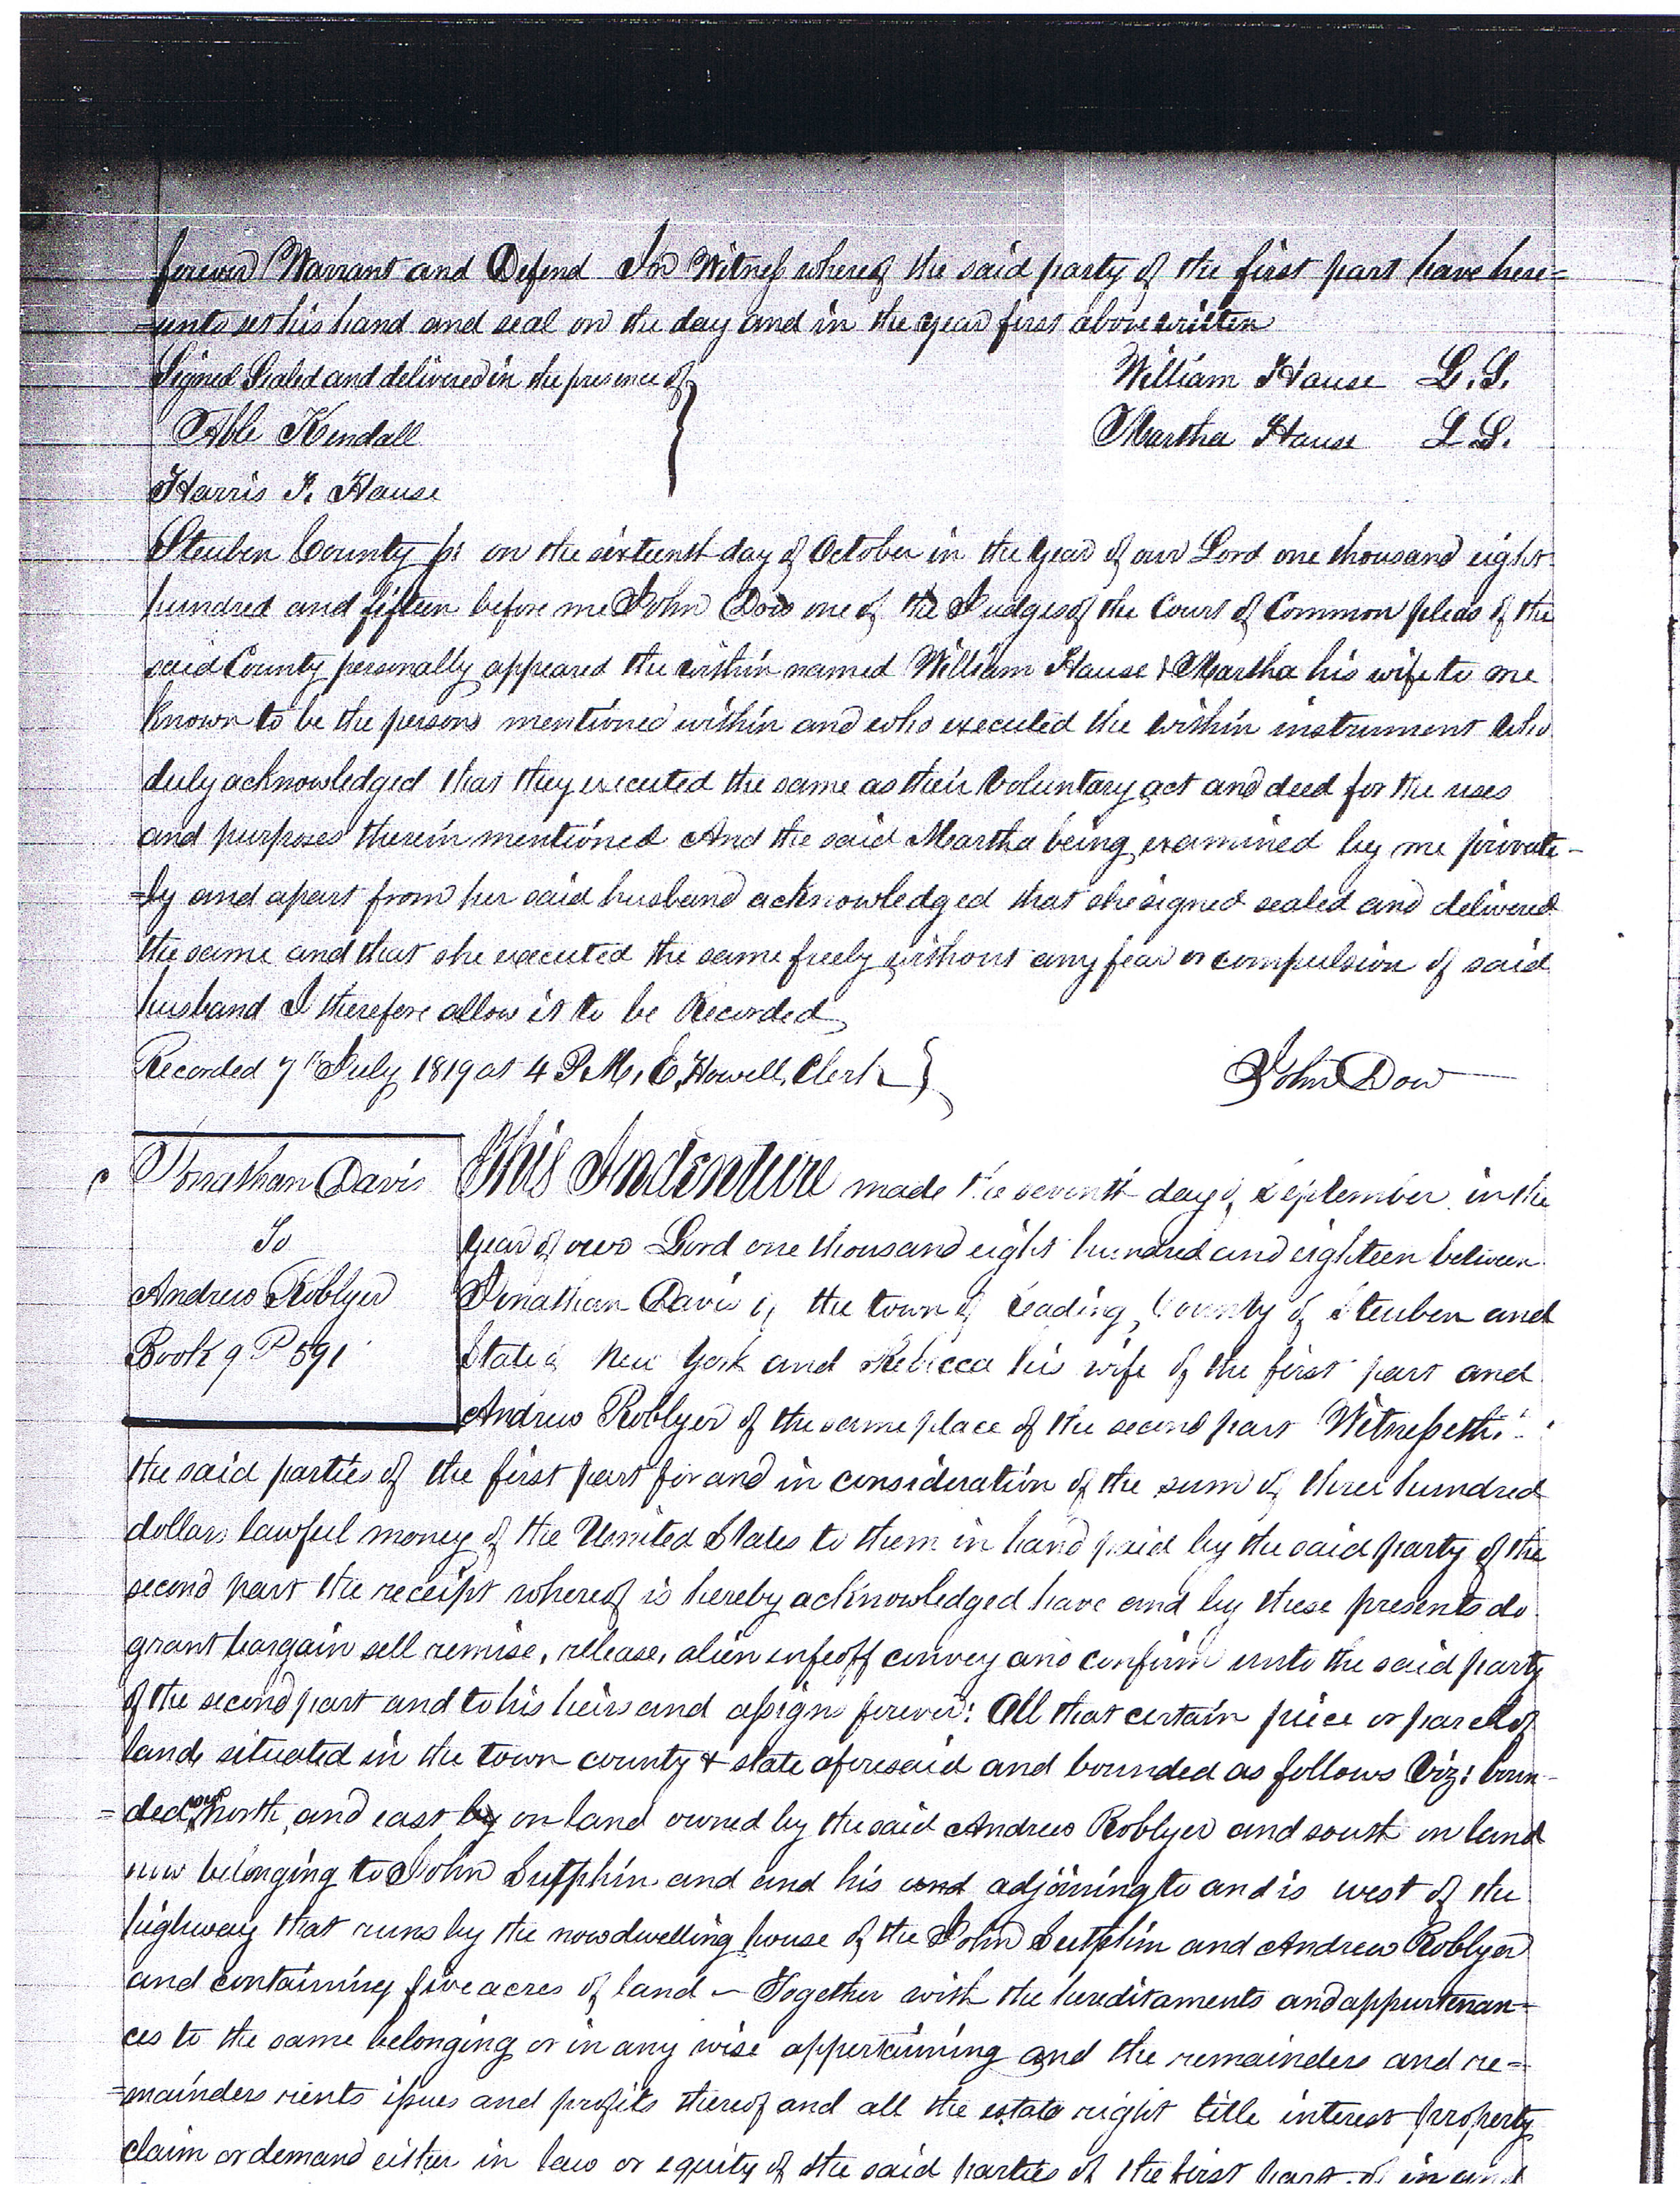 forever Warrant and Defend In Witness whereof the said party of the first part have here=
=unto set his hand and seal on the day and in the year first above written
Signed Sealed and delivered in the presence of } William Hause L.S.
Able Kendall Martha Hause L S.
Harris F. Hause
Steuben County ss: on the sixteenth day of October in the Year of our Lord one thousand eight
hundred and fifteen before me John Dow one of the Judges of the Court of Common pleas of the
said County personally appeared the within named William Hause & Martha his wife to me
known to be the persons mentioned within and who executed the within instrument who
duly acknowledged that they executed the same as their Voluntary act and deed for the uses
and purposes therein mentioned And the said Martha being examined by me private-
=ly and apart from her said husband acknowledged that she signed sealed and delivered
the same and that she executed the same freely without any fear or compulsion of said
husband I therefore allow it to be Recorded
Recorded 7th July 1819 at 4 P.M. E. Howell, Clerk } John Dow
Jonathan Davis
To
Andrew Roblyer
Book 9 P 591
This Indenture made the seventh day of September in the
year of our Lord one thousand eight hundred and eighteen between
Jonathan Davis of the town of Reading, County of Steuben and
State of New York and Rebecca his wife of the first part and
Andrew Roblyer of the same place of the second part Witnesseth:
the said parties of the first part for and in consideration of the sum of three hundred
dollars lawful money of the United States to them in hand paid by the said party of the
second part the receipt whereof is hereby acknowledged have and by these presents do
grant bargain sell remise, release, alien enfeoff convey and confirm unto the said party
of the second part and to his heirs and assigns forever: All that certain piece or parcel of
land situated in the town county & state aforesaid and bounded as follows Viz: boun-
=ded north, and east by on land owned by the said Andrew Roblyer and south on land
now belonging to John Sutphin and and his and adjoining to and is west of the
highway that runs by the now dwelling house of the John Sutphin and Andrew Roblyer
and containing five acres of land – Together with the hereditaments and appurtenan=
ces to the same belonging or in any wise appertaining and the remainders and re=
=mainders rents issues and profits thereof and all the estate right title interest property
claim or demand either in law or equity of the said parties of the first part of in and